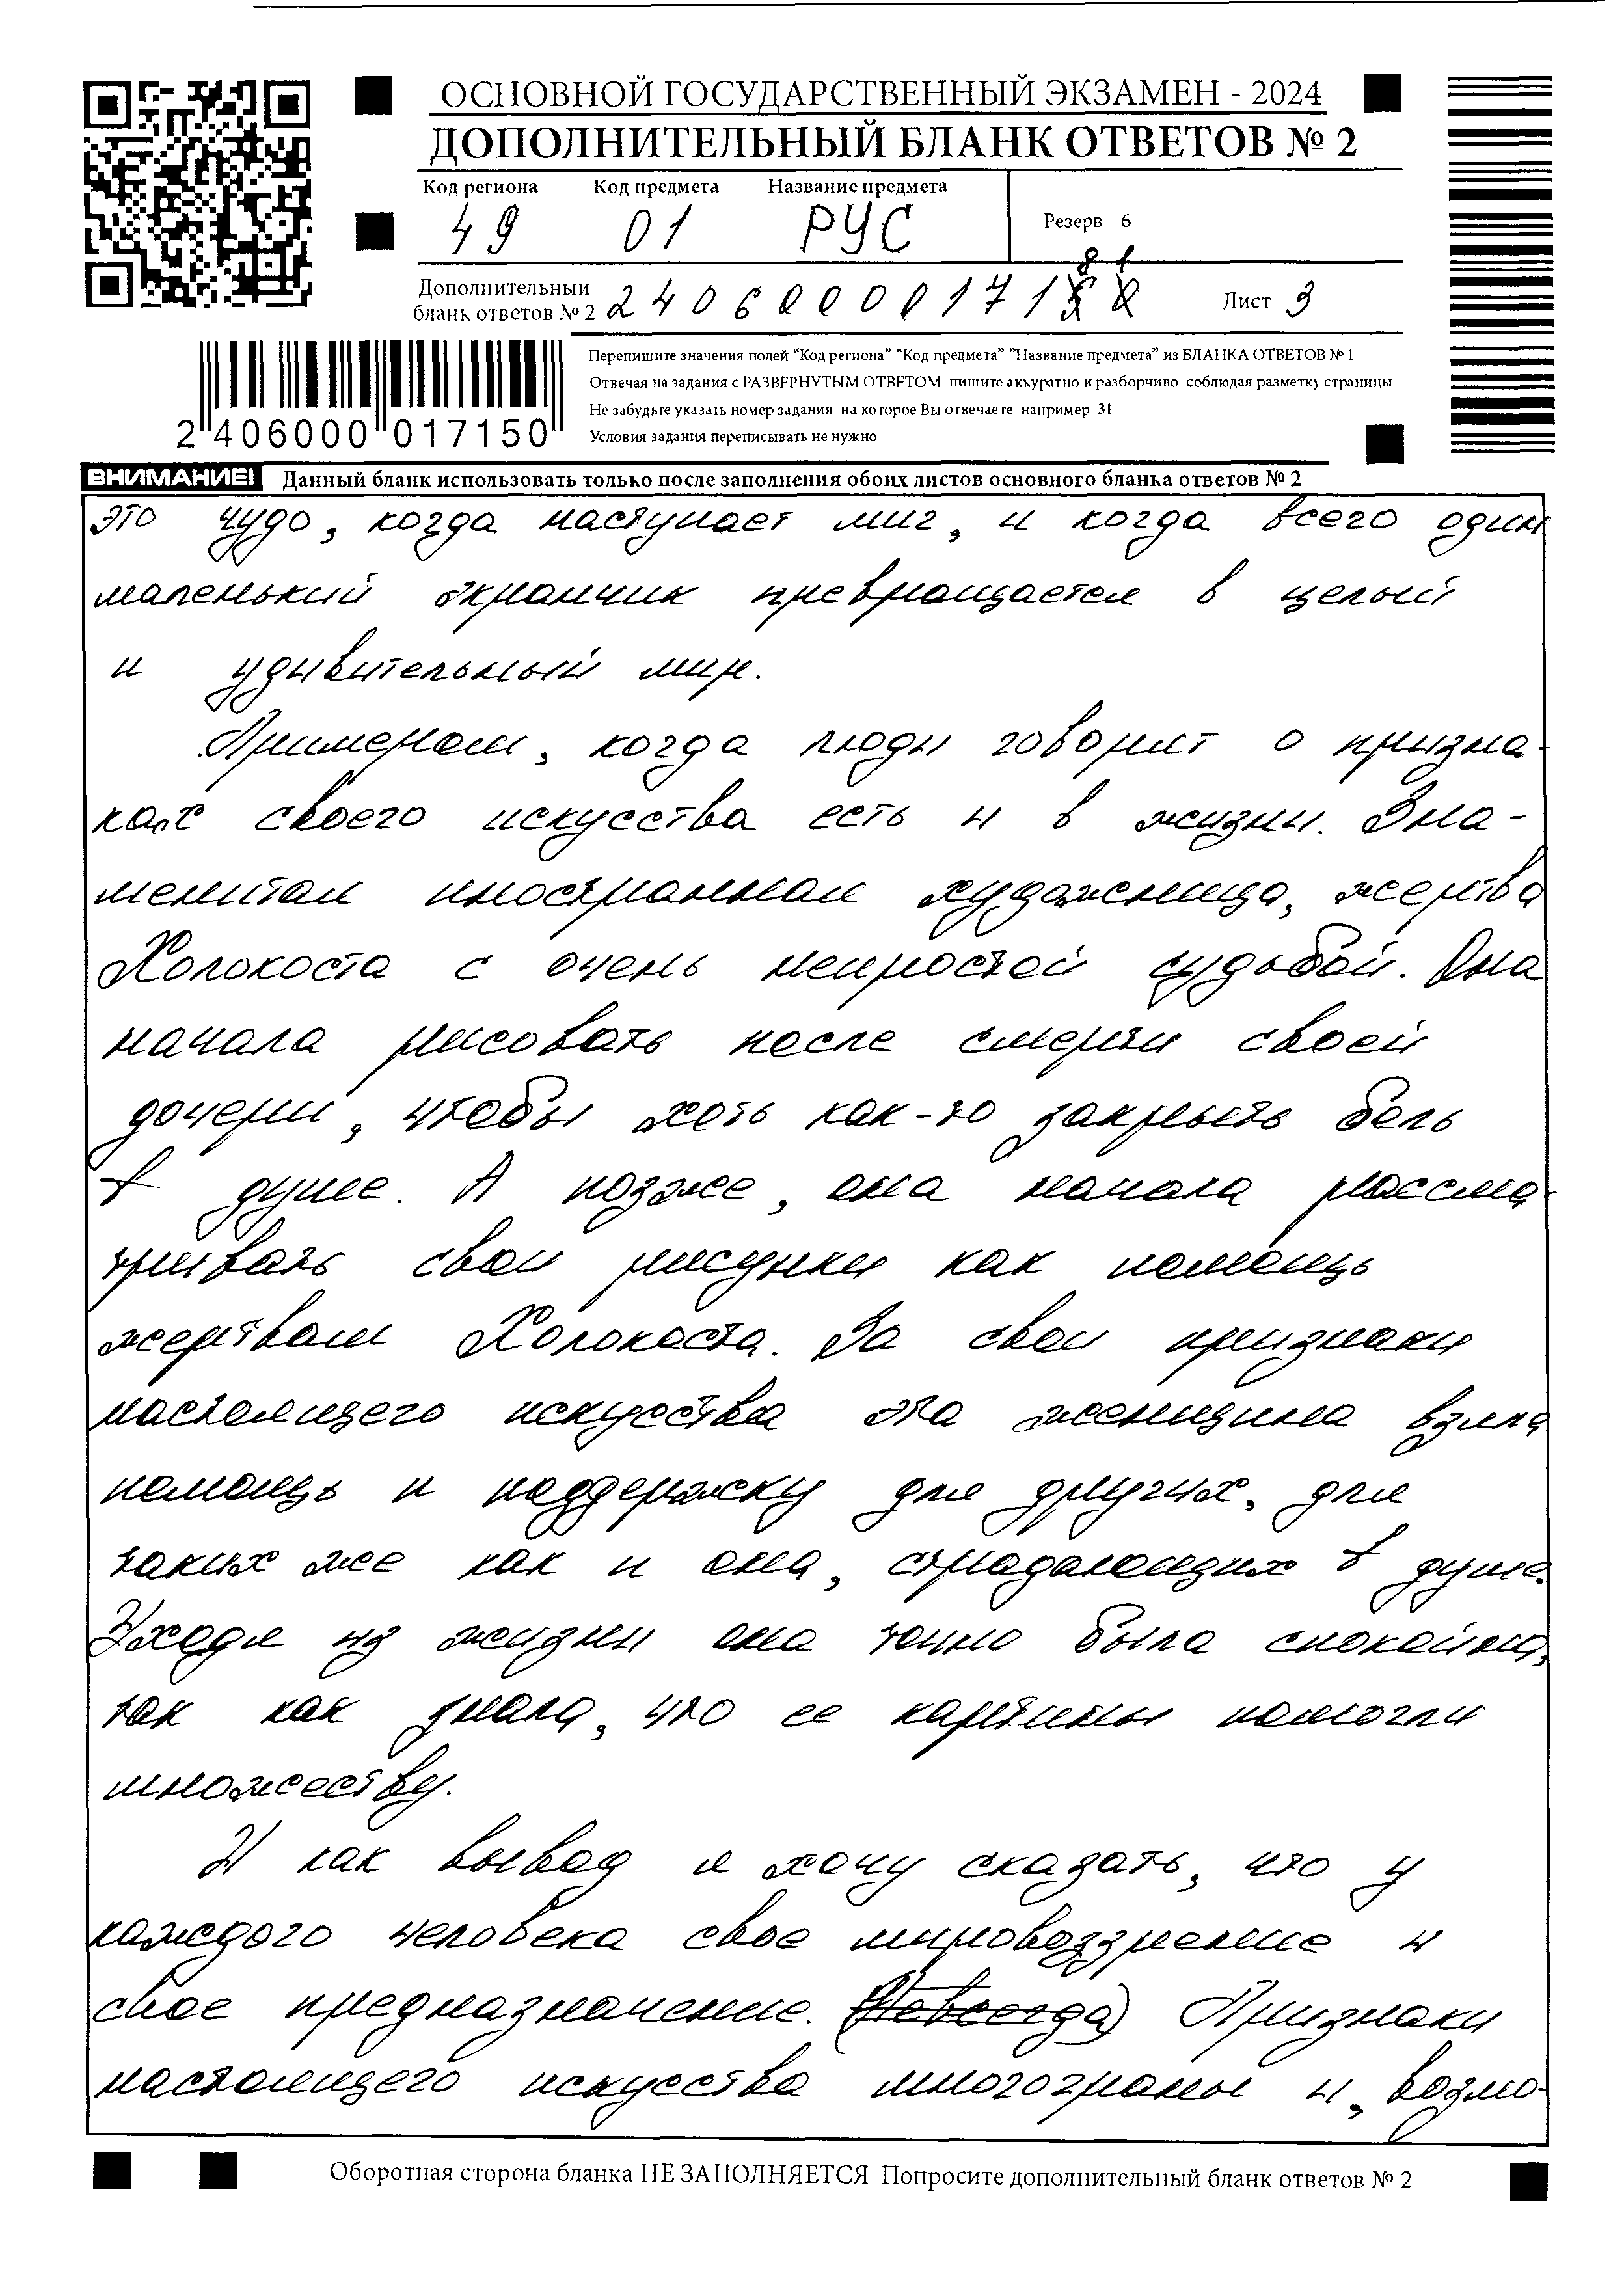 ОСНОВНОЙ ГОСУДАРСТВЕННЫЙ ЭКЗАМЕН - 2024
ДОПОЛНИТЕЛЬНЫЙ БЛАНК ОТВЕТОВ № 2
Код региона Код предмета Название предмета
49 01 РУС
Резерв 6
81
Дополнительный
бланк ответов № 2 24060000171 Лист 3
Перепишите значения полей "Код региона" "Код предмета" "Название предмета" из БЛАНКА ОТВЕТОВ № 1
Отвечая на задания с РАЗВЕРНУТЫМ ОТВЕТОМ пишите аккуратно и разборчиво соблюдая разметку страницы
Не забудьте указать номер задания на которое Вы отвечаете например 31
Условия задания переписывать не нужно
2 406000 017150
ВНИМАНИЕ! Данный бланк использовать только после заполнения обоих листов основного бланка ответов № 2
это чудо, когда наступает миг, и когда всего один
маленький экранчик превращается в целый
и удивительный мир.
Примером, когда люди говорит о призна-
ках своего искусства есть и в жизни. Зна-
менитая иностранная художница, жертва
Холокоста с очень непростой судьбой. Она
начала рисовать после смерти своей
дочери, чтобы хоть как-то закрыть боль
в душе. А позже, она начала рассма-
тривать свои рисунки как помощь
жертвам Холокоста. За свои признаки
настоящего искусства эта женщина взяла
помощь и поддержку для других, для
таких же как и она, страдающих в душе.
Уходя из жизни она точно была спокойна,
так как знала, что ее картины помогли
множеству.
И как вывод я хочу сказать, что у
каждого человека свое мировоззрение и
свое предназначение. (Невсегда) Признаки
настоящего искусства многограны и, возмо-
Оборотная сторона бланка НЕ ЗАПОЛНЯЕТСЯ Попросите дополнительный бланк ответов № 2